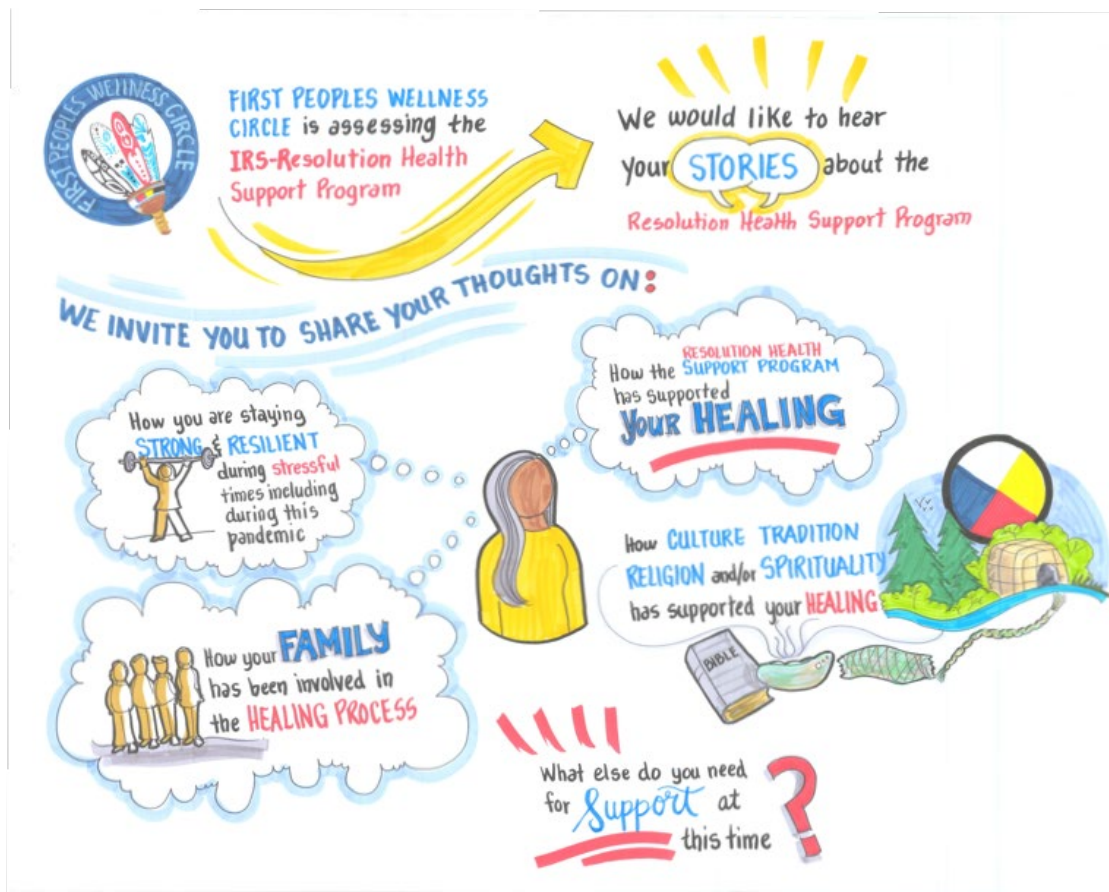 FIRST PEOPLES WELLNESS CIRCLE
FIRST PEOPLES WELLNESS
CIRCLE is assessing the
IRS-Resolution Health
Support Program
We would like to hear
your STORIES about the
Resolution Health Support Program
WE INVITE YOU TO SHARE YOUR THOUGHTS ON:
How you are staying
STRONG & RESILIENT
during stressful
times including
during this
pandemic
RESOLUTION HEALTH
How the SUPPORT PROGRAM
has supported
YOUR HEALING
How CULTURE TRADITION
RELIGION and/or SPIRITUALITY
has supported your HEALING
BIBLE
How your FAMILY
has been involved in
the HEALING PROCESS
What else do you need
for Support at
this time ?